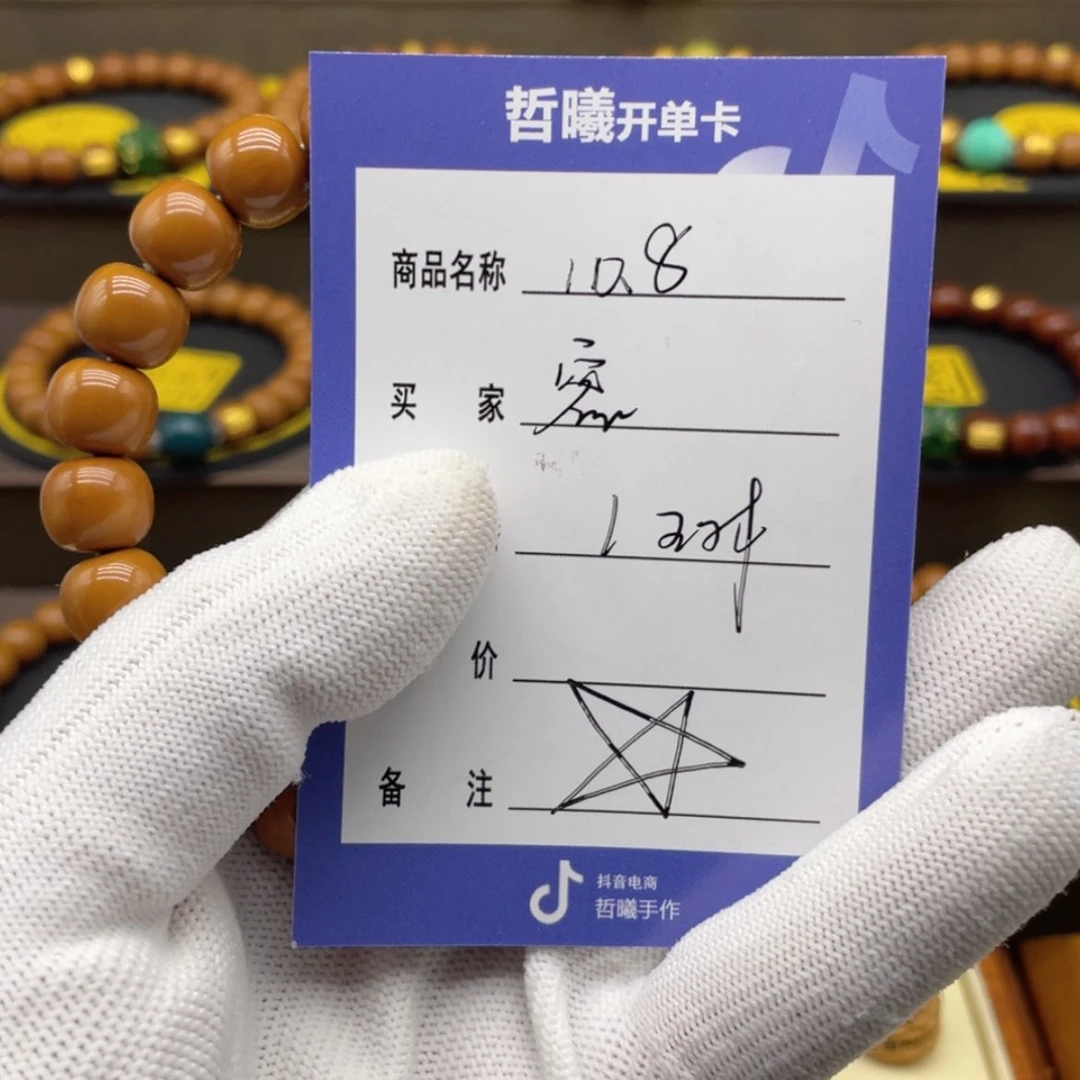 哲曦开单卡
商品名称 10.8
买家
1对
价
备注
抖音电商
哲曦手作